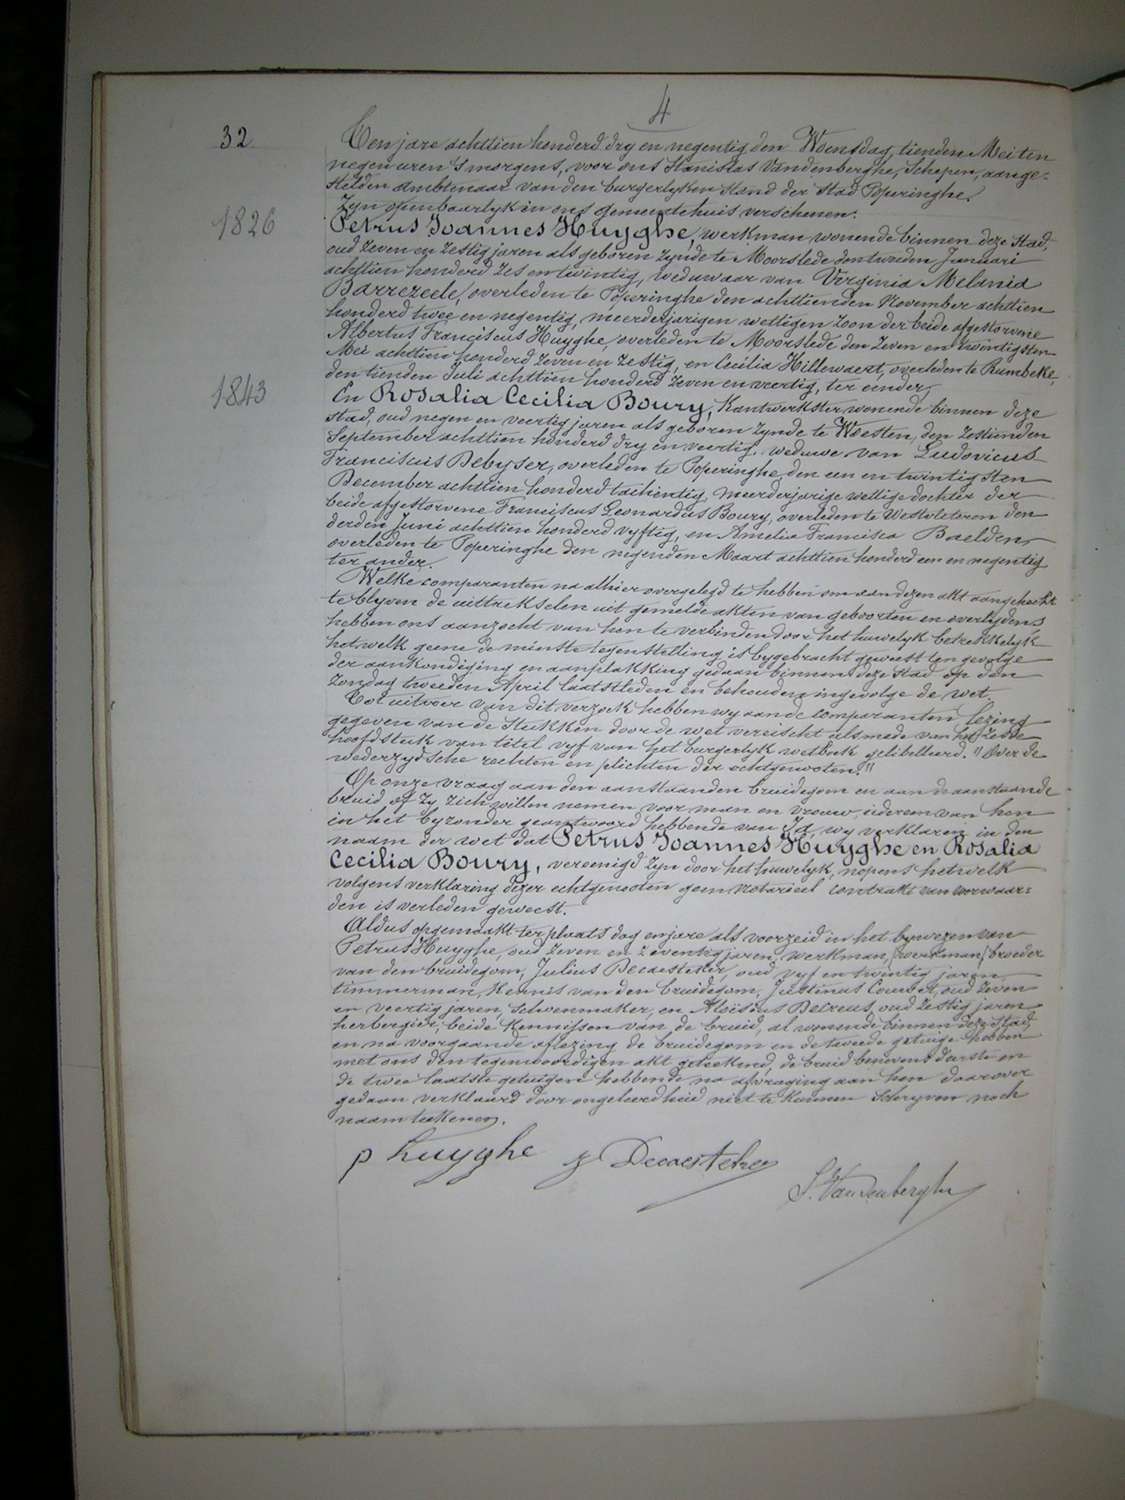 4
32
Ten jare achttien honderd dry en negentig den Woensdag, tienden Mei ten
negen uren 's morgens, voor ons Stanislas Vandenberghe, Schepen, aange-
stelden ambtenaar van den burgerlyken stand der Stad Poperinghe.
Zyn openbaarlyk in ons gemeentehuis verschenen.
1826
Petrus Joannes Huyghe, werkman wonende binnen deze Stad,
oud zeven en zestig jaren als geboren zynde te Moorslede den tweeden Januari
achttien honderd zes en twintig, weduwaar van Virginia Melania
Barrezeele, overleden te Poperinghe den achttienden November achttien
honderd twee en negentig, meerderjarigen wettigen zoon der beide afgestorvene
Albertus Franciscus Huyghe, overleden te Moorslede den zeven en twintigsten
Mei achttien honderd zeven en zestig, en Cecilia Hillewaert, overleden te Rumbeke,
den tienden Juli achttien honderd zeven en veertig, ter eender,
1843
En Rosalia Cecilia Boury, Kantwerkster wonende binnen deze
stad, oud negen en veertig jaren als geboren zynde te Woesten, den zestienden
September achttien honderd dry en veertig, weduwe van Ludovicus
Franciscus Debyser, overleden te Poperinghe, den een en twintigsten
December achttien honderd tachentig, meerderjarige wettige dochter der
beide afgestorvene Franciscus Leonardus Boury, overleden te Westvleteren den
derden Juni achttien honderd vyftig, en Amelia Francisca Baelden,
overleden te Poperinghe den negenden Maart achttien honderd een en negentig
ter ander.
Welke comparanten na alhier overgelegd te hebben om aan dezen akt aangehecht
te blyven de uittrekselen uit gemelde akten van geboorten en overlydens
hebben ons aanzocht van hen te verbinden door het huwelyk betrekkelyk
hetwelk geene de minste tegenstelling is bygebracht geweest ten gevolge
der aankondiging en aanplakking gedaan binnen deze stad op den
Zondag tweeden April laatstleden en behouden ingevolge de wet.
Tot uitvoer van dit verzoek hebben wy aan de comparanten lezing
gegeven van de Stukken door de wet vereischt alsmede van het zesde
hoofdstuk van titel vyf van het burgerlyk wetboek gelibelleerd. "Over de
wederzydsche rechten en plichten der echtgenooten."
Op onze vraag aan den aanstaanden bruidegom en aan de aanstaande
bruid of zy zich willen nemen voor man en vrouw, iedereen van hen
in het byzonder geantwoord hebbende van Ja, wy verklaren in den
naam der wet dat Petrus Joannes Huyghe en Rosalia
Cecilia Boury, vereenigd zyn door het huwelyk, nopens hetwelk
volgens verklaring dezer echtgenooten geen notarieel contrakt van voorwaar-
den is verleden geweest.
Aldus opgemaakt ter plaats dag en jare als voorzeid in het bywezen van
Petrus Huyghe, oud zeven en zeventig jaren, werkman, (werkman) broeder
van den bruidegom, Julius Decaesteker, oud vyf en twintig jaren,
timmerman, kennis van den bruidegom, Justinus oud zeven
en veertig jaren, schoenmaker, en Aloïsius oud zestig jaren
herbergier, beide kennissen van de bruid, al wonende binnen deze stad,
en na voorgaande aflezing de bruidegom en de tweede getuige hebben
met ons den tegenwoordigen akt geteekend, de bruid benevens d'eerste en
de twee laatste getuigen hebbende na afvraging aan hen daarover
gedaan verklaard door ongeleerdheid niet te kunnen schryven noch
naamteekenen.
p huyghe
J Decaesteker
S. Vandenberghe